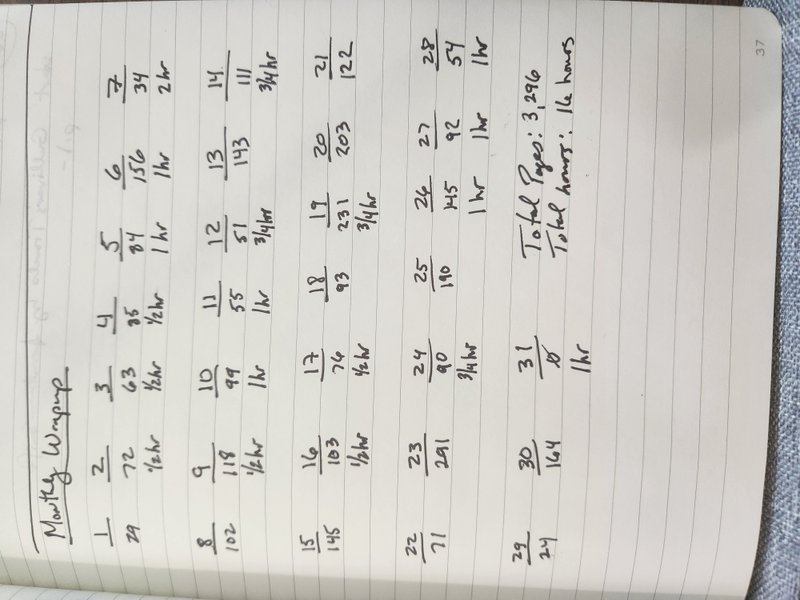 Monthly Wrapup
1 2 3 4 5 6 7
29 72 63 85 84 156 34
1/2hr 1/2hr 1/2hr 1hr 1hr 2hr
8 9 10 11 12 13 14
102 118 99 55 51 143 111
1/2hr 1hr 1hr 3/4hr 3/4hr
15 16 17 18 19 20 21
145 103 76 93 231 203 122
1/2hr 1/2hr 3/4hr
22 23 24 25 26 27 28
71 291 90 190 145 92 54
3/4hr 1hr 1hr 1hr
29 30 31
24 164 0
1hr
Total Pages: 3,296
Total hours: 16 hours
37